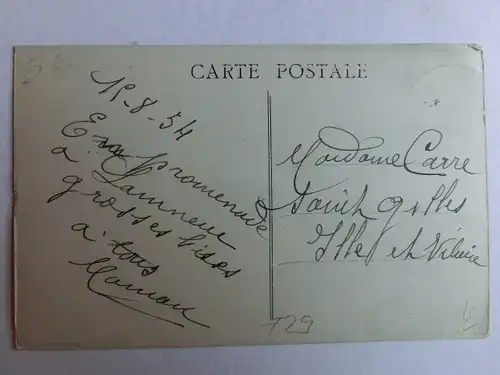 CARTE POSTALE
15-8-54
En promenade
à Lanneur
grosses bises
à tous
Maman
Madame Carre
Saint gilles
Ille et Vilaine
129